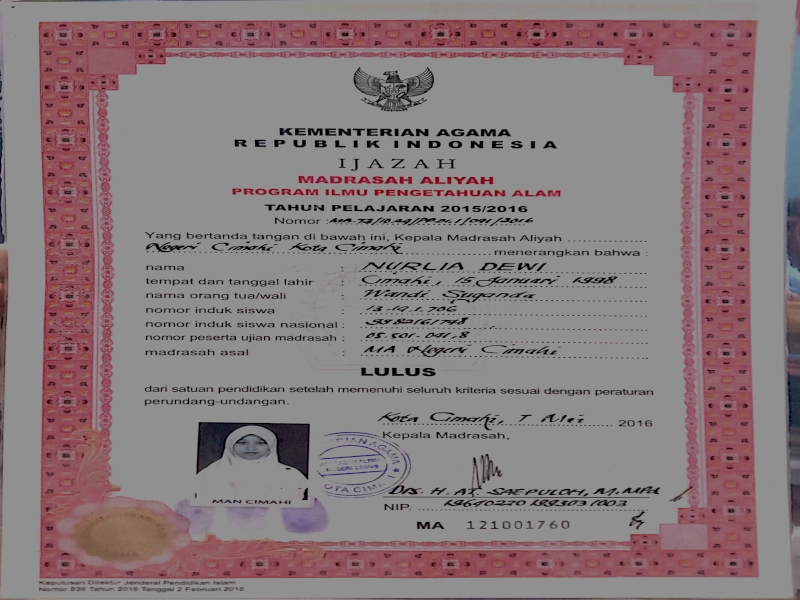 KEMENTERIAN AGAMA
REPUBLIK INDONESIA
IJAZAH
MADRASAH ALIYAH
PROGRAM ILMU PENGETAHUAN ALAM
TAHUN PELAJARAN 2015/2016
Nomor :
Yang bertanda tangan di bawah ini, Kepala Madrasah Aliyah
Negeri Cimahi Kota Cimahi menerangkan bahwa :
nama : NURLIA DEWI
tempat dan tanggal lahir : Cimahi, 15 Januari 1998
nama orang tua/wali : Wandi Suganda
nomor induk siswa : 13.14.1.706
nomor induk siswa nasional :
nomor peserta ujian madrasah :
madrasah asal : MA Negeri Cimahi
LULUS
dari satuan pendidikan setelah memenuhi seluruh kriteria sesuai dengan peraturan
perundang-undangan.
Kota Cimahi, 7 Mei 2016
Kepala Madrasah,
MAN CIMAHI
Drs. H. A. SAEPULOH, M.MPd
NIP. 19640220 199303 1003
MA 121001760
Keputusan Direktur Jenderal Pendidikan Islam
Nomor 836 Tahun 2016 Tanggal 2 Februari 2016